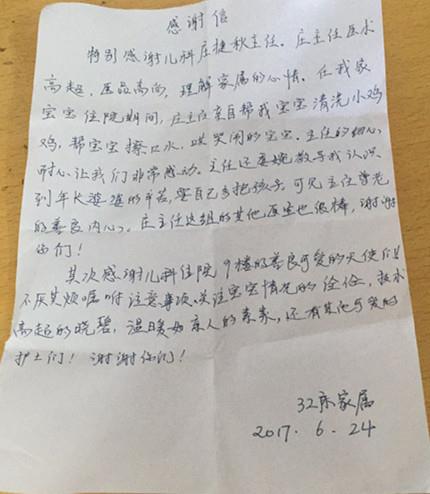 感谢信
特别感谢儿科庄捷秋主任。庄主任医术
高超，医品高尚，理解家属的心情。在我家
宝宝住院期间，庄主任亲自帮我宝宝清洗小鸡
鸡，帮宝宝擦口水，哄哭闹的宝宝。主任的细心
耐心让我们非常感动。主任还委婉教导我认识
到年长婆婆的辛苦，要自己多抱孩子。可见主任
的善良内心。庄主任这组的其他医生也很棒，谢谢
你们！
其次感谢儿科住院9楼的善良可爱的天使们！
不厌其烦嘱咐注意事项、关注宝宝情况的佺佺，技术
高超的晓碧，温暖如亲人的素素，还有其他可爱的
护士们！谢谢你们！
32床家属
2017.6.24